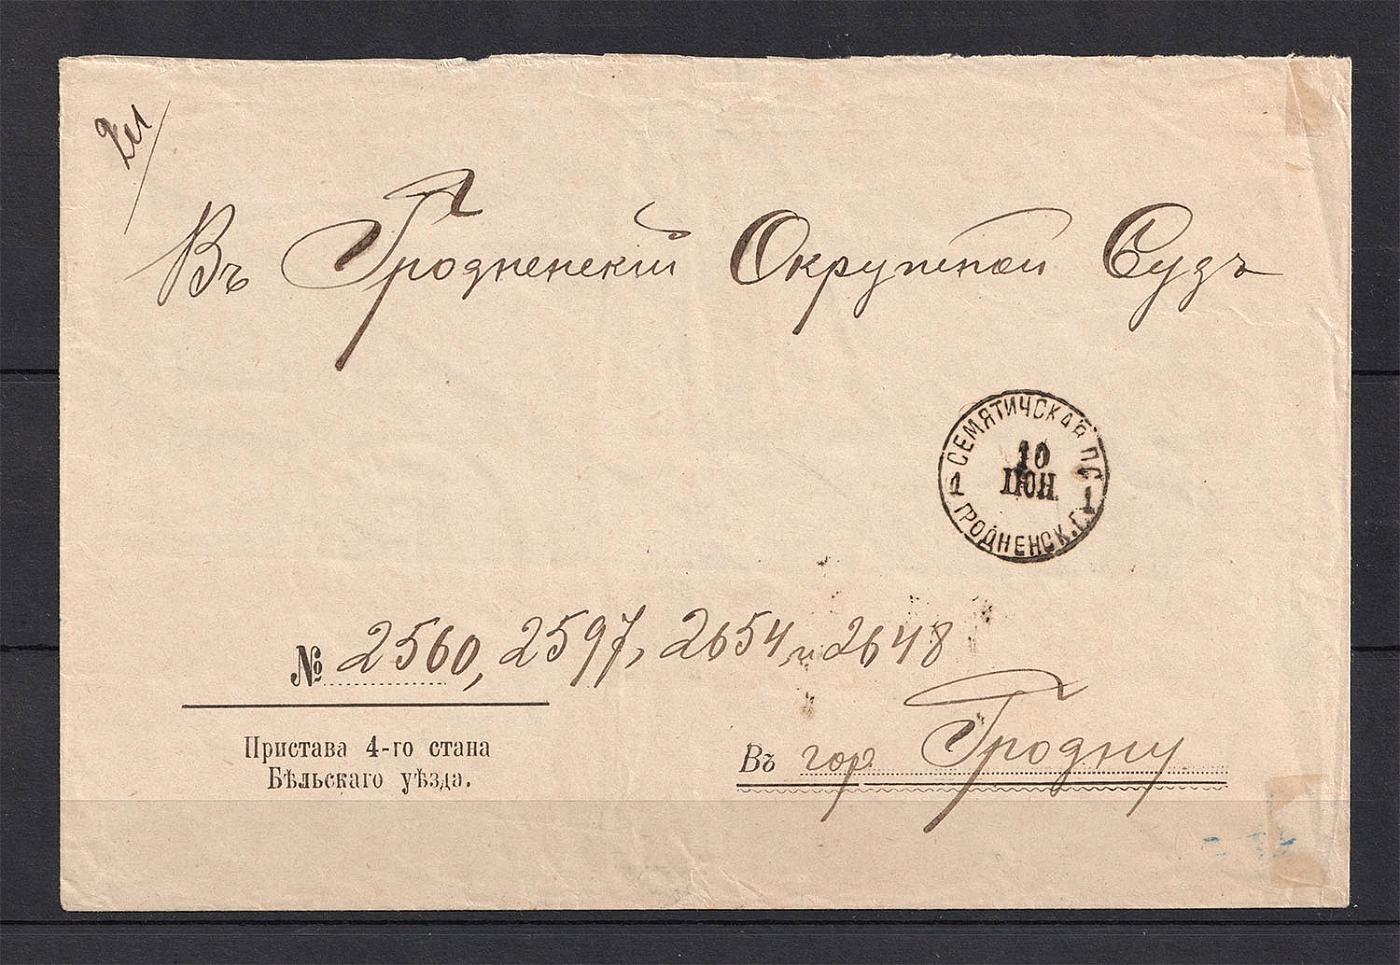 Въ Гродненскій Окружной Судъ
СЕМЯТИЧСКАЯ П.С.
10
ІЮН.
1 1
ГРОДНЕНСК.Г.
№ 2560, 2597, 2654, и 2648
Пристава 4-го стана
Бѣльскаго уѣзда.
Въ гор. Гродну